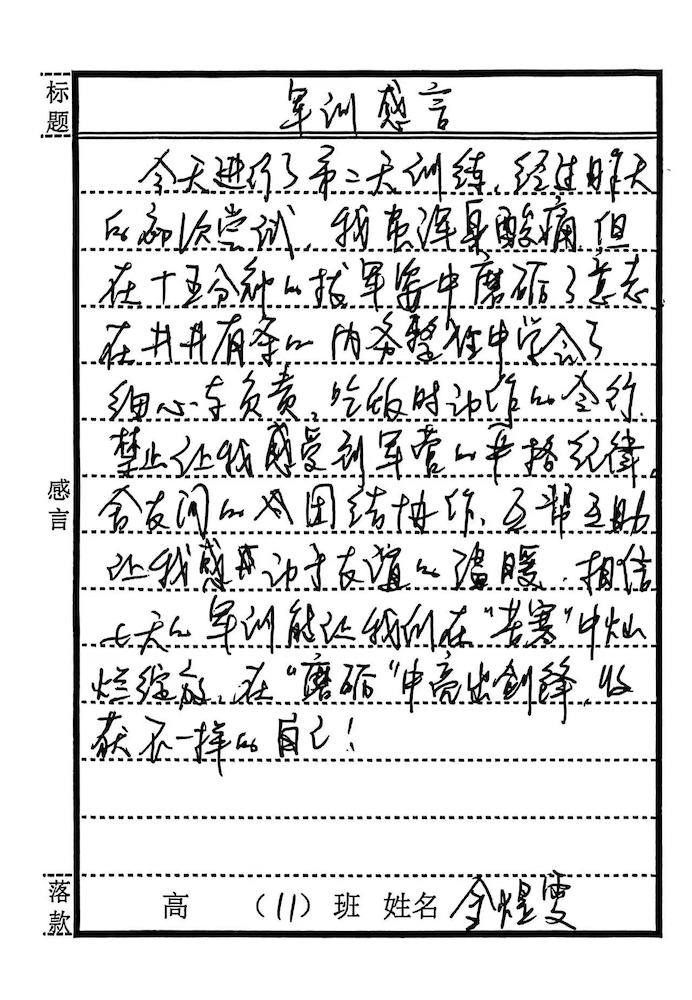 标题
军训感言
今天进行了第二天训练,经过昨天
的初次尝试,我虽浑身酸痛,但
在十五分钟的拔军姿中磨砺了意志
在井井有条的内务整理中学会了
细心与负责,吃饭时动作的令行
禁止让我感受到军营的严格纪律,
舍友间的团结协作、互帮互助
让我感动于友谊的温暖,相信
七天的军训能让我们在“苦寒”中灿
烂绽放,在“磨砺”中亮出剑锋,收
获不一样的自己!
感言
落款
高 (11)班 姓名 金煜雯